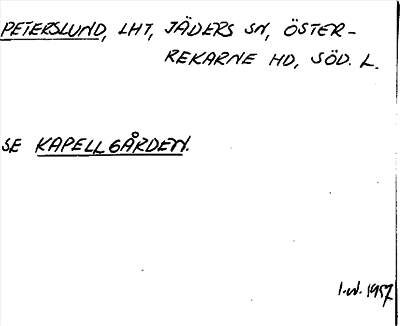 PETERSLUND, LHT, JÄDERS SN, ÖSTER-
REKARNE HD, SÖD. L.
SE KAPELLGÅRDEN.
I.W. 1957